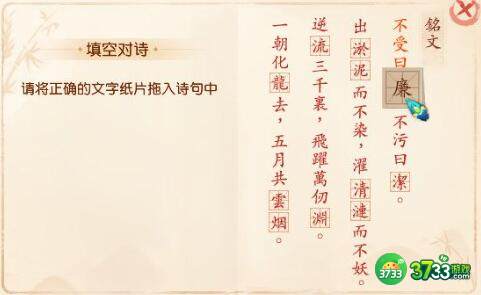 填空对诗
请将正确的文字纸片拖入诗句中
銘文
不受曰廉，不污曰潔。
出淤泥而不染，濯清漣而不妖。
逆流三千裏，飛躍萬仞淵。
一朝化龍去，五月共雲烟。
3733
3733游戏
.com